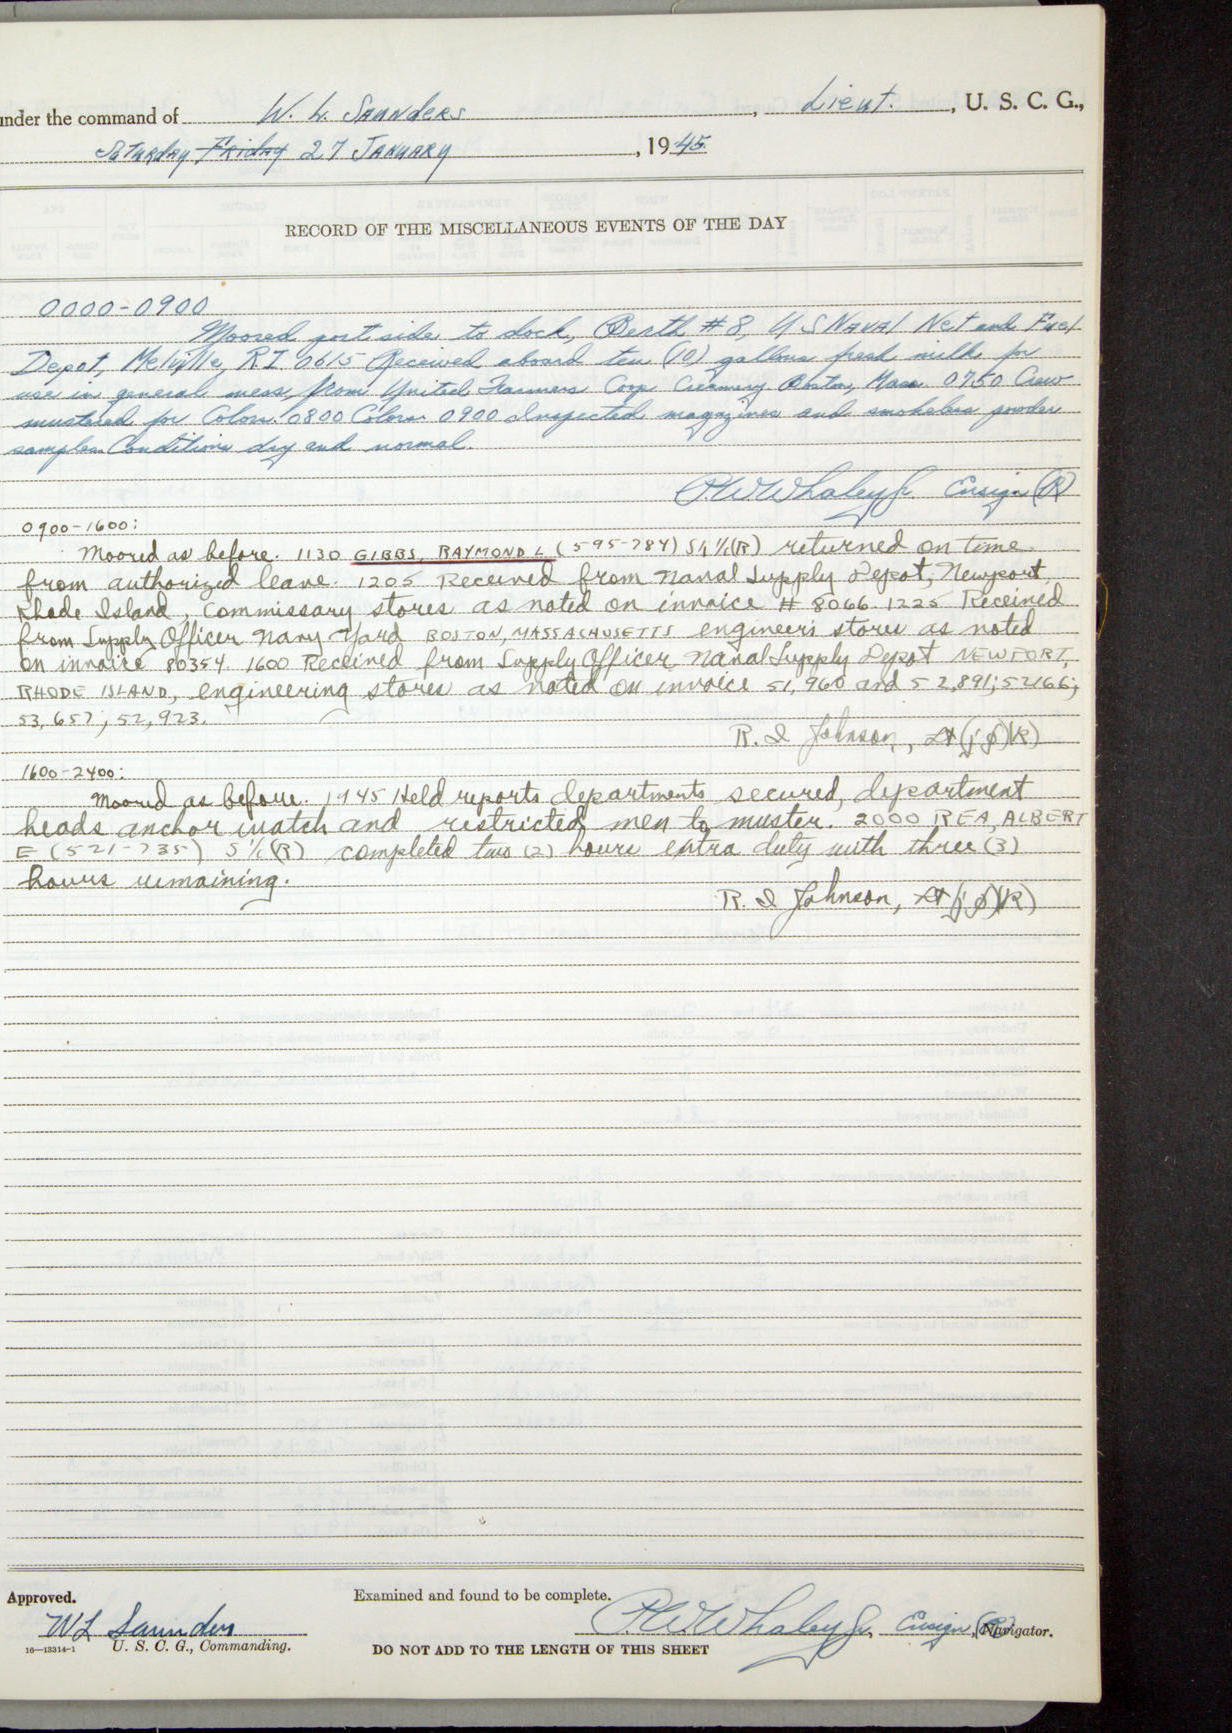 under the command of W. L. Saunders, Lieut., U. S. C. G.,
Saturday Friday 27 January, 1945
RECORD OF THE MISCELLANEOUS EVENTS OF THE DAY
0000-0900
Moored port side to dock, Berth #8, U S Naval Net and Fuel
Depot, Melville, RI. 0615 Received aboard ten (10) gallons fresh milk for
use in general mess, from United Farmers Coop Creamery Boston, Mass. 0750 Crew
mustered for Colors. 0800 Colors. 0900 Inspected magazines and smokeless powder
samples. Conditions dry and normal.
P.W. Whaley Jr Ensign (R)
0900-1600:
Moored as before. 1130 GIBBS, RAYMOND L (595-784) S1/c(R) returned on time
from authorized leave. 1205 Received from Naval Supply Depot, Newport,
Rhode Island, Commissary stores as noted on invoice # 8066. 1225 Received
from Supply Officer Navy Yard BOSTON, MASSACHUSETTS engineers stores as noted
on invoice 80354. 1600 Received from Supply Officer Naval Supply Depot NEWPORT,
RHODE ISLAND, engineering stores as noted on invoice 51,960 and 52,891; 52166;
53,657; 52,923.
R. I Johnson, Lt(jg)(R)
1600-2400:
Moored as before. 1945 Held reports departments secured, department
heads anchor watch and restricted men to muster. 2000 REA, ALBERT
E (521-735) S1/c(R) completed two (2) hours extra duty with three (3)
hours remaining.
R. I Johnson, Lt(jg)(R)
Approved. Examined and found to be complete.
W L Saunders P.W. Whaley Jr, Ensign (R), Navigator.
16—13314-1 U. S. C. G., Commanding. DO NOT ADD TO THE LENGTH OF THIS SHEET